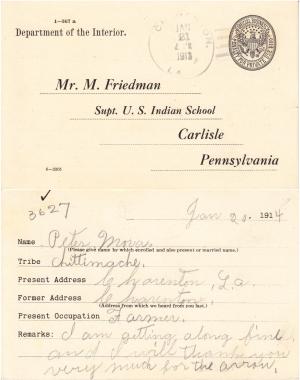 1-367 a
Department of the Interior.
JAN
1913
Mr. M. Friedman
Supt. U. S. Indian School
Carlisle
Pennsylvania
3627
Jan 20. 1914
Name Peter Mora.
(Please give name by which enrolled and also present or married name.)
Tribe Chittimache.
Present Address Charenton, La.
Former Address Charenton.
(Address from which we heard from you last.)
Present Occupation Farmer.
Remarks: I am getting along fine
and I will thank you
very much for the arrow.